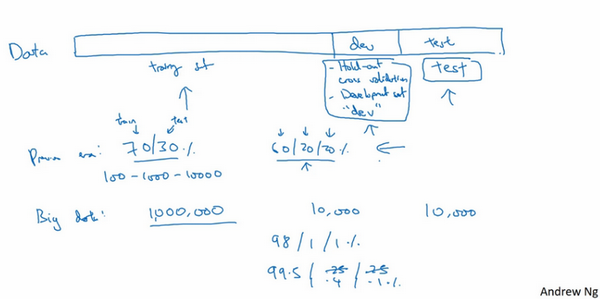 Data
dev
test
training set
- Hold-out
cross validation
- Development set
"dev"
test
train test
Previous era: 70/30% 60/20/20%
100 - 1000 - 10000
Big data: 1,000,000 10,000 10,000
98 / 1 / 1%
99.5 / .25 / .25
.4 / .1%
Andrew Ng